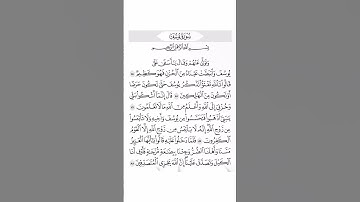 سُورَةُ يُوسُفَ
بِسْمِ ٱللَّهِ ٱلرَّحْمَٰنِ ٱلرَّحِيمِ
وَتَوَلَّىٰ عَنْهُمْ وَقَالَ يَٰٓأَسَفَىٰ عَلَىٰ
يُوسُفَ وَٱبْيَضَّتْ عَيْنَاهُ مِنَ ٱلْحُزْنِ فَهُوَ كَظِيمٌ
قَالُوا۟ تَٱللَّهِ تَفْتَؤُا۟ تَذْكُرُ يُوسُفَ حَتَّىٰ تَكُونَ حَرَضًا
أَوْ تَكُونَ مِنَ ٱلْهَٰلِكِينَ قَالَ إِنَّمَآ أَشْكُوا۟ بَثِّى
وَحُزْنِىٓ إِلَى ٱللَّهِ وَأَعْلَمُ مِنَ ٱللَّهِ مَا لَا تَعْلَمُونَ
يَٰبَنِىَّ ٱذْهَبُوا۟ فَتَحَسَّسُوا۟ مِن يُوسُفَ وَأَخِيهِ وَلَا تَا۟يْـَٔسُوا۟
مِن رَّوْحِ ٱللَّهِ إِنَّهُۥ لَا يَا۟يْـَٔسُ مِن رَّوْحِ ٱللَّهِ إِلَّا ٱلْقَوْمُ
ٱلْكَٰفِرُونَ فَلَمَّا دَخَلُوا۟ عَلَيْهِ قَالُوا۟ يَٰٓأَيُّهَا ٱلْعَزِيزُ
مَسَّنَا وَأَهْلَنَا ٱلضُّرُّ وَجِئْنَا بِبِضَٰعَةٍ مُّزْجَىٰةٍ فَأَوْفِ لَنَا
ٱلْكَيْلَ وَتَصَدَّقْ عَلَيْنَآ إِنَّ ٱللَّهَ يَجْزِى ٱلْمُتَصَدِّقِينَ